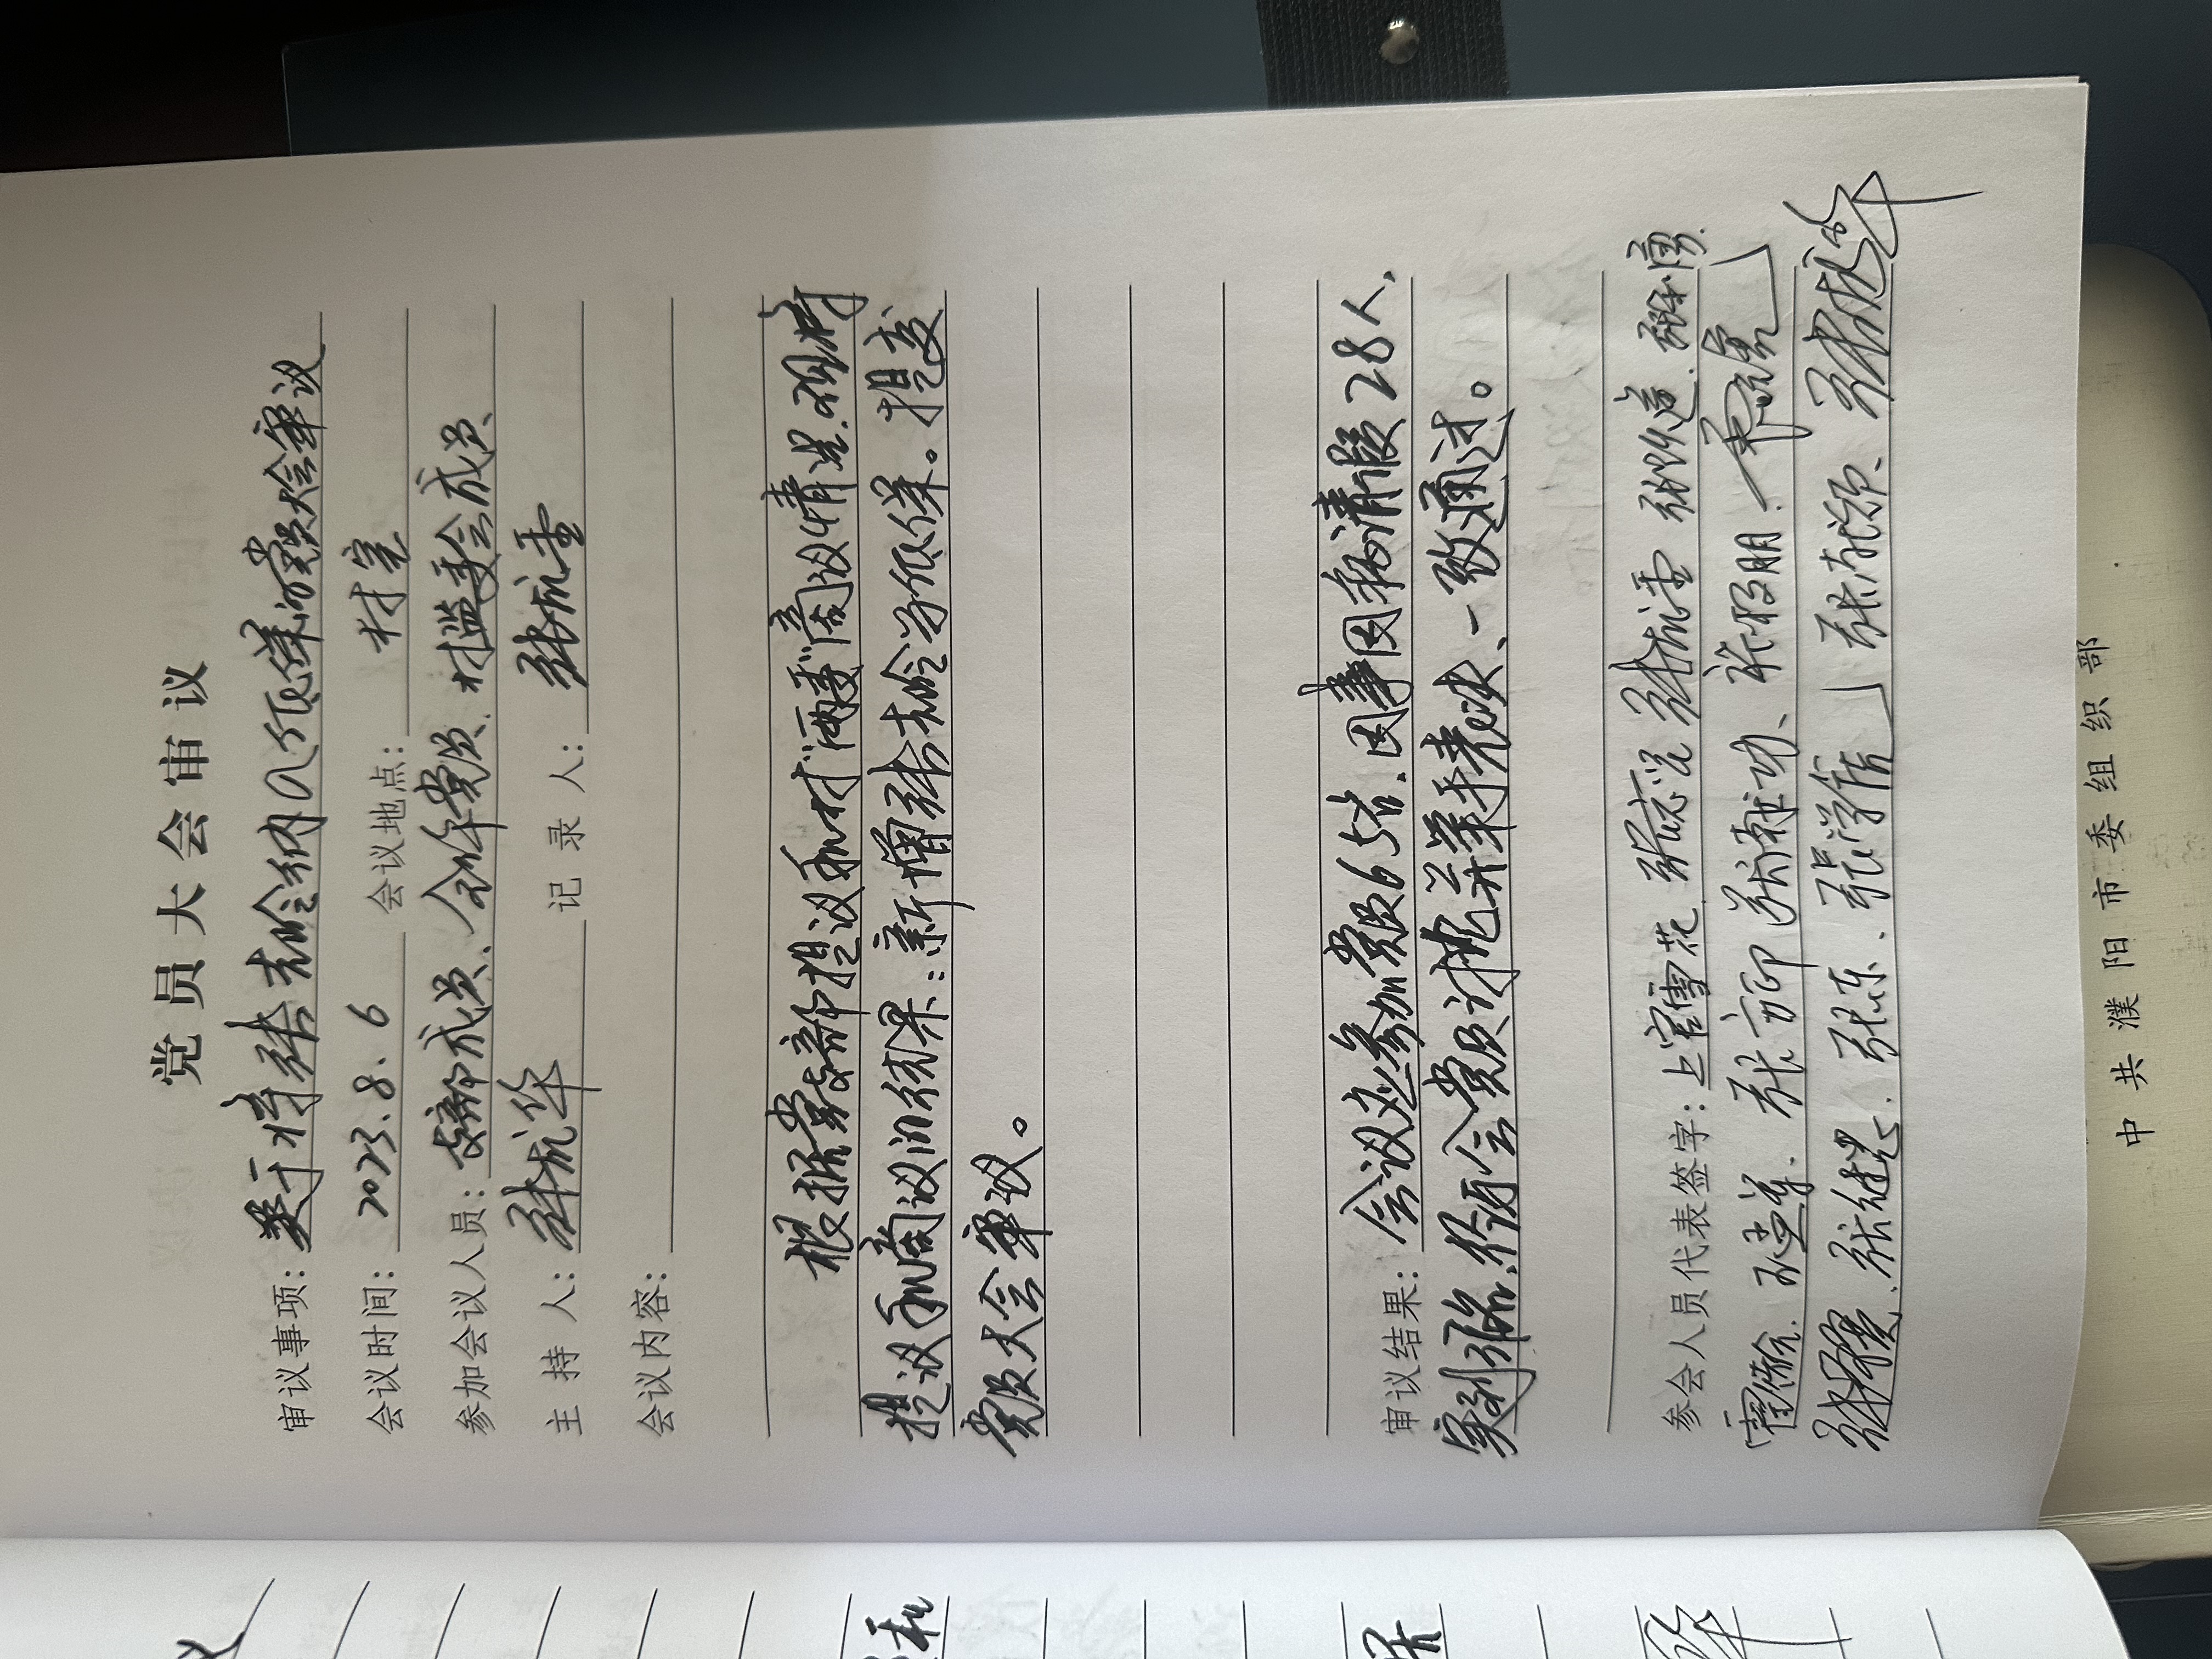 党员大会审议
审议事项：关于将张志玲纳入低保的党员大会审议
会议时间：2023.8.6 会议地点：村室
参加会议人员：支部成员、全体党员、村监委会成员
主持人：张成华 记录人：张成雷
会议内容：
根据党支部提议和村“两委”商议情况，现将
提议和商议的结果：新增张志玲为低保。提交
党员大会审议。
审议结果：会议应参加党员65名，因事因病请假28人，
实到37名，经与会党员讨论并举手表决、一致通过。
参会人员代表签字：上官雪花 张成雷
张方印
张东、张成华
中共濮阳市委组织部